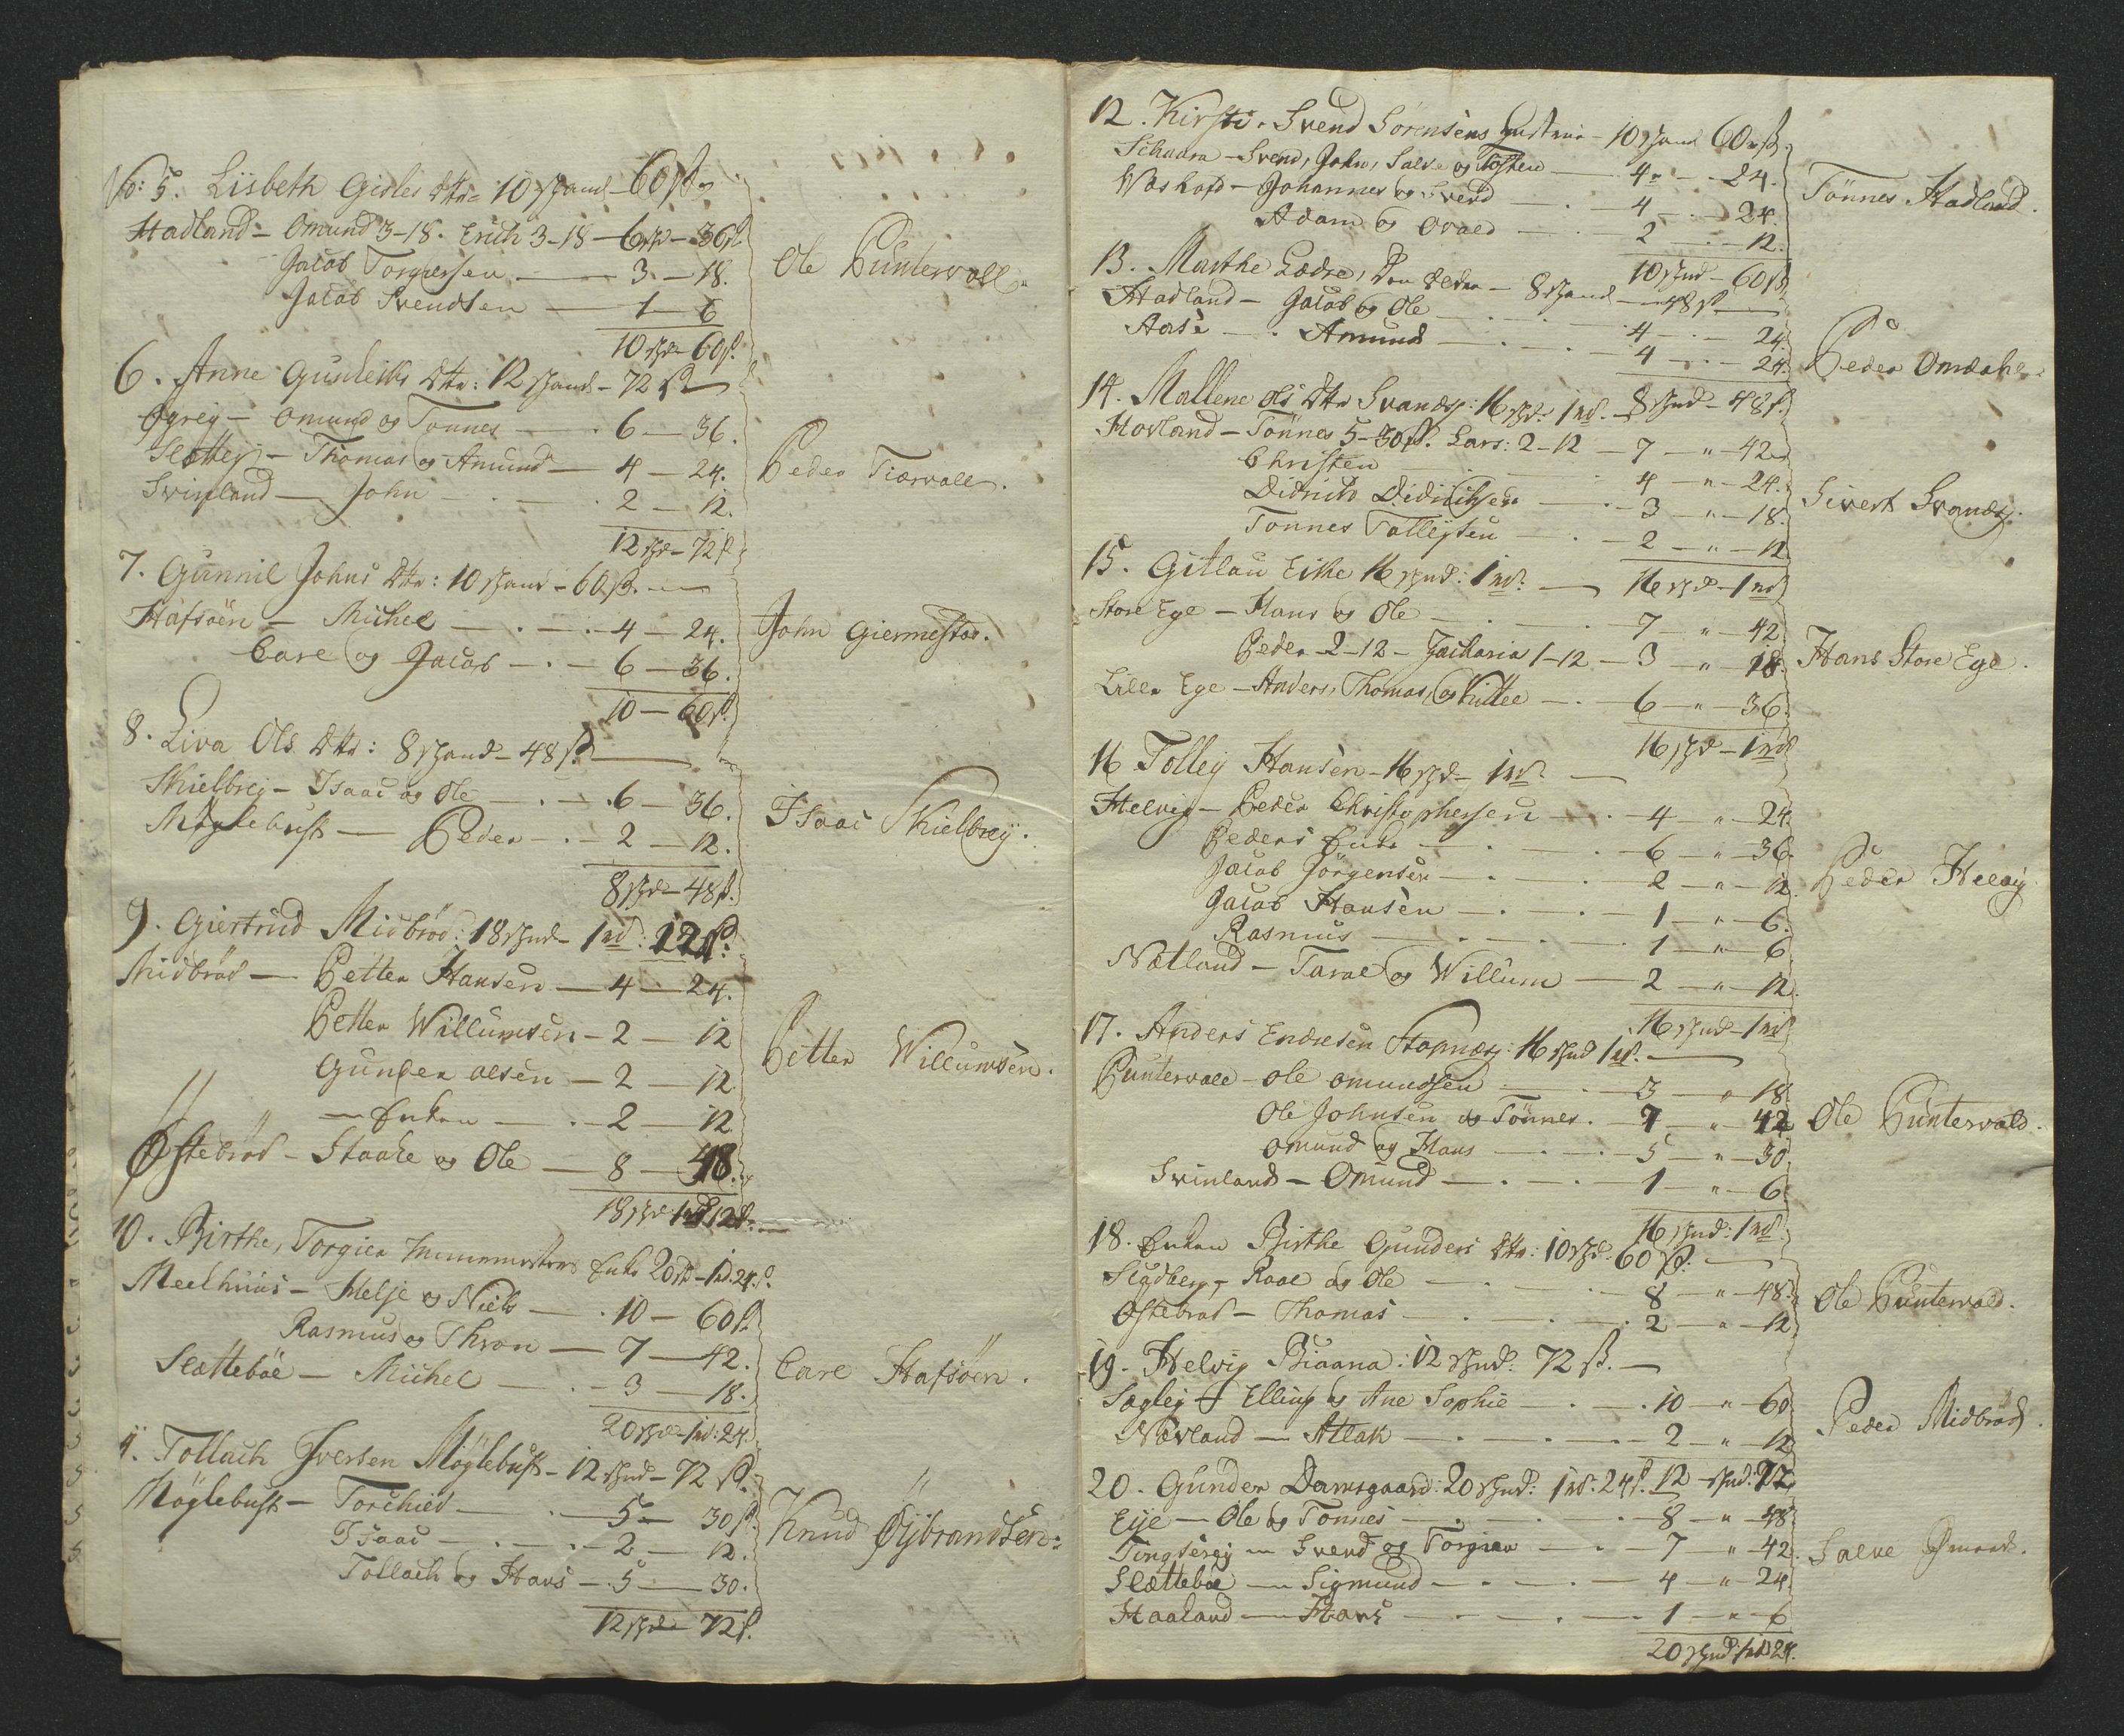 No: 5. Lisbeth Gisles Dtr: 10 spand - 60 ß
Hadland - Omund 3-18. Erich 3-18 - 6 spd - 36 ß
Jacob Torgiersen - 3 - 18.
Jacob Svendsen - 1 - 6
10 spd - 60 ß.
Ole Puntervall
6. Anne Gunleiks Dtr: 12 spand - 72 ß
Øgreij - Omund og Tonnes - 6 - 36.
Slettej - Thomas og Amund - 4 - 24.
Svinland - John - 2 - 12.
12 spd - 72 ß
Peder Tiørvall.
7. Gunnil Johns Dtr: 10 spand - 60 ß.
Hafsöen - Michel - 4 - 24.
Carl og Jacob - 6 - 36.
10 - 60 ß.
John Giermestad.
8. Liva Ols Dtr: 8 spand - 48 ß
Skielbrej - Isaac og Ole - 6 - 36.
Möglebust - Peder - 2 - 12.
8 spd - 48 ß.
Isaac Skielbreij.
9. Giertrud Midbröd: 18 spnd - 1 rd: 12 ß.
Midbröd - Petter Hansen - 4 - 24.
Petter Willumsen - 2 - 12
Gunder Olsen - 2 - 12
" - Enken - 2 - 12
Østebröd - Staale og Ole - 8 - 48.
18 spd 1 rd 12 ß.
Petter Willumsen.
10. Birthe, Torgier Tømmermands Enke 20 sp - 1 rd. 24 ß.
Meelhuus - Helje og Niels - 10 - 60 ß.
Rasmus og Thron - 7 - 42.
Slætteböe - Michel - 3 - 18.
20 spd - 1 rd: 24.
Carl Hafsöen.
11. Tollach Iversen Möglebust - 12 spnd - 72 ß.
Möglebust - Torchild - 5 - 30 ß.
Isaac - 2 - 12.
Tollach og Hans - 5 - 30.
12 spd - 72 ß.
Knud Øÿbrandsen:
12. Kirsti, Svend Sörensens Hustrue - 10 spand 60 ß.
Schaara - Svend, John, Salve og Tosten - 4 - 24.
Woshofd - Johannes og Svend - 4 - 24.
Adam og Ovald - 2 - 12.
10 spnd - 60 ß.
Tönnes Hadland.
13. Marthe Lædre, Den Eldre - 8 spand - 48 ß
Hadland - Jacob og Ole - 4 - 24.
Aase - Amund - 4 - 24.
8 spnd - 48 ß.
Peder Omdahl.
14. Mallene Ols Dtr Svanæs: 16 spd: 1 rd.
Hovland - Tönnes 5-30 ß. Lars: 2-12 - 7 " 42
Christen - 4 " 24.
Didrich Didrichsen - 3 " 18.
Tonnes Tollejsen - 2 " 12
16 spd - 1 rd
Sivert Svanæs.
15. Gitlau Eike 16 spnd: 1 rd.
Store Ege - Hans og Ole - 7 " 42
Peder 2-12 - Zacharia 1-12 - 3 " 18.
Lille Ege - Anders, Thomas, og Kittel - 6 " 36.
16 spd - 1 rd
Hans Store Ege.
16 Tollej Hansen - 16 spd - 1 rd.
Helvig - Peder Christophersen - 4 " 24.
Peders Enke - 6 " 36.
Jacob Jörgensen - 2 " 12
Jacob Hansen - 1 " 6.
Rasmus - 1 " 6
Nætland - Taral og Willum - 2 " 12.
16 spnd - 1 rd
Peder Helvig
17. Anders Endresen Stapnæs: 16 spnd 1 rd.
Puntervall - Ole Omundsen - 3 " 18
Ole Johnsen og Tönnes. - 7 " 42
Omund og Hans - 5 " 30
Svinland - Omund - 1 " 6
16 spnd: 1 rd.
Ole Puntervald.
18. Enken Birthe Gunders Dtr: 10 spd: 60 ß.
Sigdberg - Roal og Ole - 8 " 48.
Østebröd - Thomas - 2 " 12
Ole Puntervald.
19. Helvig Biaana: 12 spnd: 72 ß.
Sagley - Elling og Ane Sophie - 10 " 60
Nævland - Atlak - 2 " 12
12 spnd: 72
Peder Midbröd.
20. Gunder Damsgaard: 20 spnd: 1 rd. 24 ß.
Eije - Ole og Tonnes - 8 " 48
Tingserej - Svend og Torgier - 7 " 42.
Slætteböe - Sigmund - 4 " 24
Haaland - Hans - 1 " 6
20 spnd: 1 rd 24.
Salve